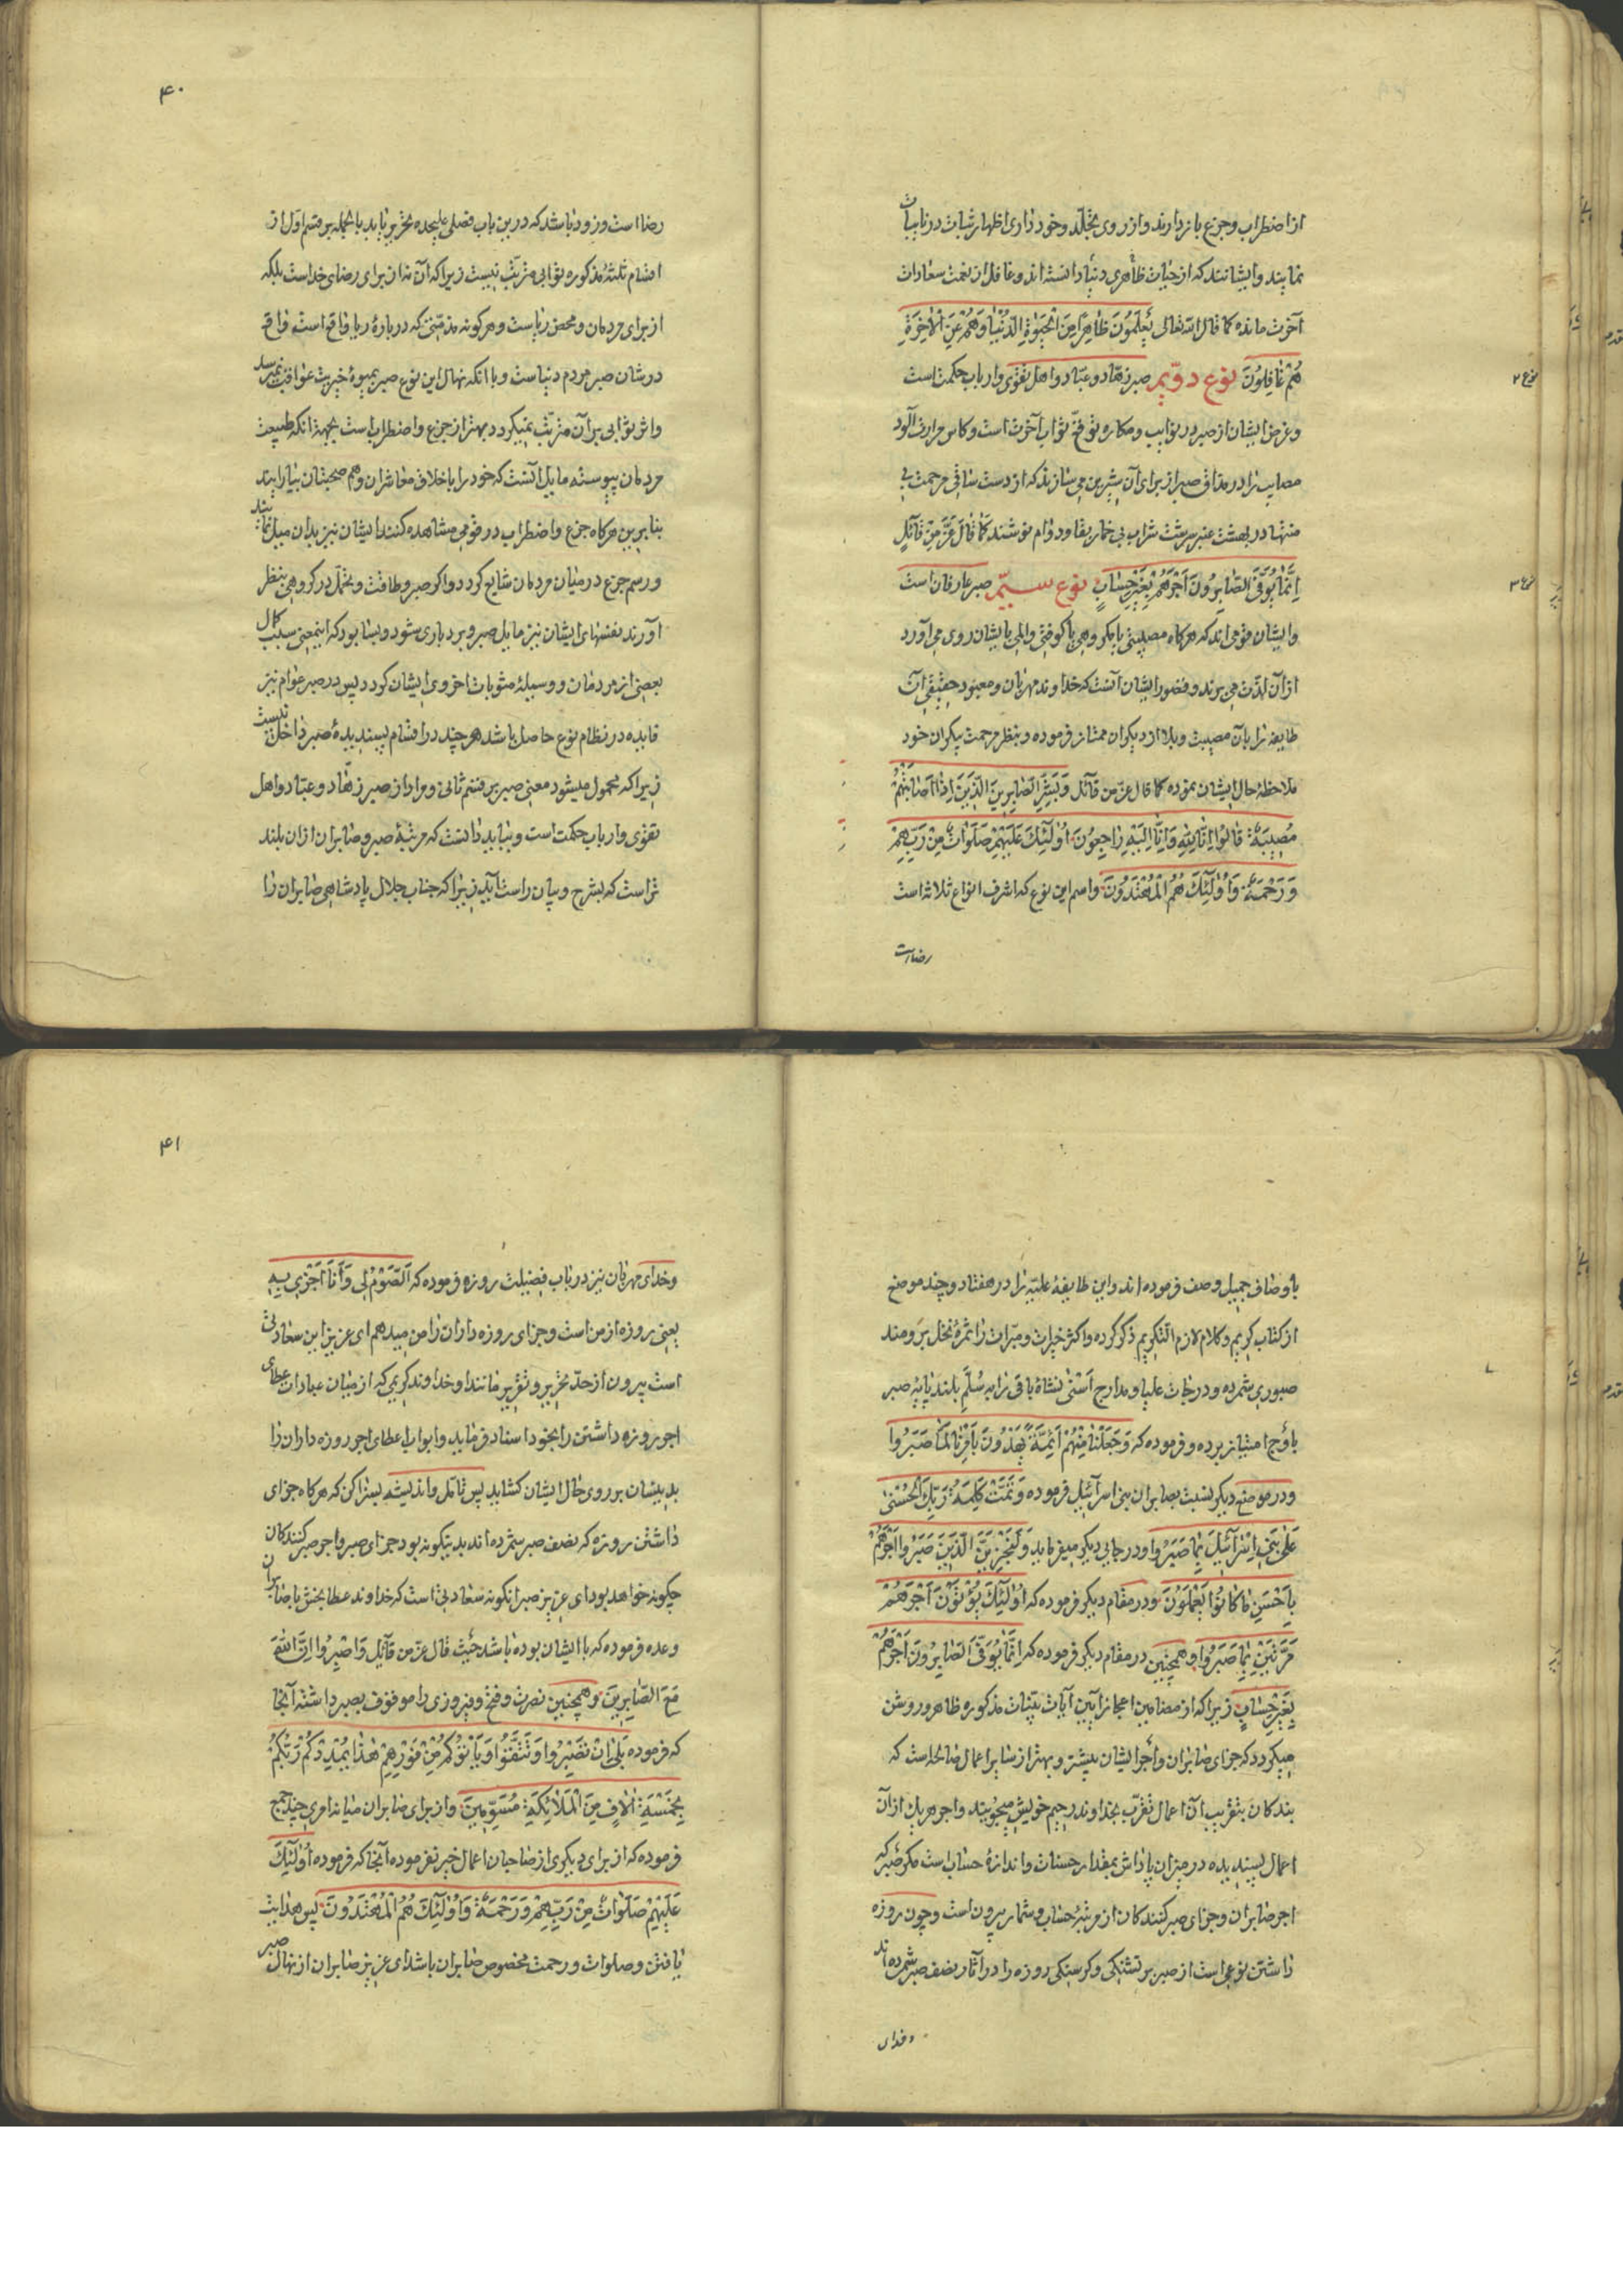 از اضطراب و جزع باز دارند و از روی تجلّد و خود داری اظهار ثبات در نایبات
نمایند و ایشانند که از حیات ظاهری دنیا دانسته اند و غافل از نعمت سعادات
آخرت مانده کما قال الله تعالی یَعْلَمُونَ ظاهِرًا مِنَ الْحَیوةِ الدُّنْیا وَهُمْ عَنِ الْآخِرَةِ
هُمْ غافِلُونَ نوع دوّیم صبر زهّاد و عبّاد و اهل تقوی و ارباب حکمت است
نوع ۲
و غرض ایشان از صبر در نوایب و مکاره توقّع ثواب آخرت است و کاس مرارت آلود
مصایب را در مذاق صبر از برای آن شیرین می سازند که از دست ساقی مرحمت بی
منتها در بهشت عنبر سرشت شراب بی خمار بقا و دوام نوشند کَما قالَ عَزَّ مِنْ قائِلٍ
اِنَّما یُوَفَّی الصّابِرُونَ اَجْرَهُمْ بِغَیْرِ حِسابٍ نوع سیّم صبر عارفان است
نوع ۳
و ایشان قومی اند که هرگاه مصیبتی یا مکروهی یا کوفتی و المی بایشان روی می آورد
از آن لذّت می برند و تصور ایشان آنست که خداوند مهربان و معبود حقیقی آن
طایفه را بآن مصیبت و بلا از دیگران ممتاز فرموده و بنظر مرحمت بیکران خود
ملاحظه حال ایشان نموده کما قال عزّ من قائل وَبَشِّرِ الصّابِرینَ الَّذینَ اِذا اَصابَتْهُمْ
مُصیبَةٌ قالُوا اِنّا لِلّهِ وَاِنّا اِلَیْهِ راجِعُونَ اُولئِکَ عَلَیْهِمْ صَلَواتٌ مِنْ رَبِّهِمْ
وَرَحْمَةٌ وَاُولئِکَ هُمُ الْمُهْتَدُونَ و اسم این نوع که اشرف انواع ثلاثه است
رضا است
۴۰
رضا است و زود باشد که درین باب فصلی علیحده تحریر یابد بالجمله بر قسم اوّل از
اقسام ثلثهٔ مذکوره ثوابی مترتّب نیست زیرا که آن نه از برای رضای خداست بلکه
از برای مردمان و محض ریاست و هر گونه مذمّتی که دربارهٔ ریا واقع است واقع
در شان صبر مردم دنیاست و با آنکه نهال این نوع صبر بمیوهٔ خیریت عواقب نمیرسد
و اثر ثوابی بر آن مترتّب نمیگردد بهتر از جزع و اضطرابست بجهة آنکه طبیعت
مردمان پیوسته مایل آنست که خود را باخلاق معاشران و هم صحبتان بیارایند
بنابرین هرگاه جزع و اضطراب در قومی مشاهده کنند ایشان نیز بدان میل نمایند
و رسم جزع در میان مردمان شایع گردد و اگر صبر و طاقت و تحمّل در گروهی بنظر
آورند نفسهای ایشان نیز مایل صبر و بردباری شود و بسا بود که اینمعنی سبب کمال
بعضی از مردمان و وسیلهٔ مثوبات اخروی ایشان گردد پس در صبر عوام نیز
فایده در نظام نوع حاصل باشد هر چند در اقسام پسندیدهٔ صبر داخل نیست
زیرا که محمول میشود معنی صبر بر قسم ثانی و مراد از صبر زهّاد و عبّاد و اهل
تقوی و ارباب حکمت است و بباید دانست که مرتبهٔ صبر و صابران از آن بلند
تر است که بشرح و بیان راست آید زیرا که جناب جلال پادشاهی صابران را
باوصاف جمیل وصف فرموده اند و این طایفهٔ علیّه را در هفتاد و چند موضع
از کتاب کریم و کلام لازم التکریم ذکر کرده و اکثر خیرات و مبرّات را ثمرهٔ نخل برومند
صبوری شمرده و درجات علیا و مدارج اَسْنی نشاهٔ باقی را به سُلّم بلند پایهٔ صبر
باوج امتیاز برده و فرموده که وَجَعَلْنا مِنْهُمْ اَئِمَّةً یَهْدُونَ بِاَمْرِنا لَمّا صَبَرُوا
و در موضع دیگر نسبت بصابران بنی اسرآئیل فرموده وَتَمَّتْ کَلِمَةُ رَبِّکَ الْحُسْنی
عَلی بَنی اِسْرآئیلَ بِما صَبَرُوا و در جایی دیگر میفرماید وَلَنَجْزِیَنَّ الَّذینَ صَبَرُوا اَجْرَهُمْ
بِاَحْسَنِ ما کانُوا یَعْمَلُونَ و در مقام دیگر فرموده که اُولئِکَ یُؤْتَوْنَ اَجْرَهُمْ
مَرَّتَیْنِ بِما صَبَرُوا و همچنین در مقام دیگر فرموده که اِنَّما یُوَفَّی الصّابِرُونَ اَجْرَهُمْ
بِغَیْرِ حِسابٍ زیرا که از مضامین اعجاز آیین آیات بیّنات مذکوره ظاهر و روشن
میگردد که جزای صابران و اجر ایشان بیشتر و بهتر از سایر اعمال صالحه است که
بندکان بتقریب آن اعمال تقرّب بخداوند رحیم خویش میجویند و اجر هر یک از آن
اعمال پسندیده در میزان پاداش بمقدار حسنات و اندازهٔ حسابست مکر صبر که
اجر صابران و جزای صبر کنندکان از مرتبهٔ حساب و شمار بیرون است و چون روزه
داشتن نوعی است از صبر بر تشنکی و کرسنکی روزه را در آثار نصف صبر شمرده اند
و خدای
۴۱
و خدای مهربان نیز در باب فضیلت روزه فرموده که اَلصَّوْمُ لی وَاَنَا اَجْزی بِهِ
یعنی روزه از من است و جزای روزه داران را من میدهم ای عزیز این سعادتی
است بیرون از حدّ تحریر و تقریر مانند او خداوند کریمی که از میان عبادات عطای
اجر روزه داشتن را بخود اسناد فرماید و ابواب اعطای اجر روزه داران را
بدینسان بر روی حال ایشان کشاید پس تامّل و اندیشه بسزا کن که هرکاه جزای
داشتن روزه که نصف صبر شمرده اند بدینکونه بود جزای صبر و اجر صبر کنندکان
چکونه خواهد بود ای عزیز صبر آنکونه سعادتی است که خداوند عطا بخش با صابران
وعده فرموده که با ایشان بوده باشد حَیْثُ قال عزّ من قآئل وَاصْبِرُوا اِنَّ اللهَ
مَعَ الصّابِرینَ و همچنین نصرت و فتح و فیروزی را موقوف بصبر داشته آنجا
که فرموده بَلی اِنْ تَصْبِرُوا وَتَتَّقُوا وَیَأْتُوکُمْ مِنْ فَوْرِهِمْ هذا یُمْدِدْکُمْ رَبُّکُمْ
بِخَمْسَةِ آلافٍ مِنَ الْمَلائِکَةِ مُسَوِّمینَ و از برای صابران میانه امری چند جمع
فرموده که از برای دیگری از صاحبان اعمال خیر نفرموده آنجا که فرموده اُولئِکَ
عَلَیْهِمْ صَلَواتٌ مِنْ رَبِّهِمْ وَرَحْمَةٌ وَاُولئِکَ هُمُ الْمُهْتَدُونَ پس هدایت
یافتن و صلوات و رحمت مخصوص صابران باشد ای عزیز صابران از نهال صبر